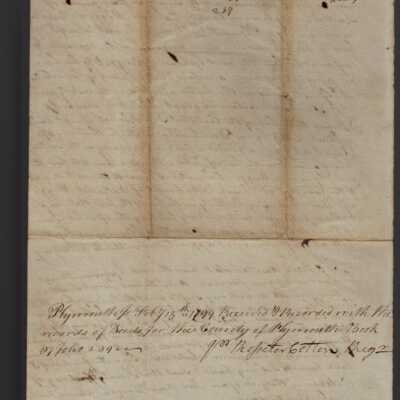 219
Plymouth ss Feby 15th 1799 Received & Recorded with the
records of Deeds for this County of Plymouth Book
folio
pr Rossiter Cotton Regr